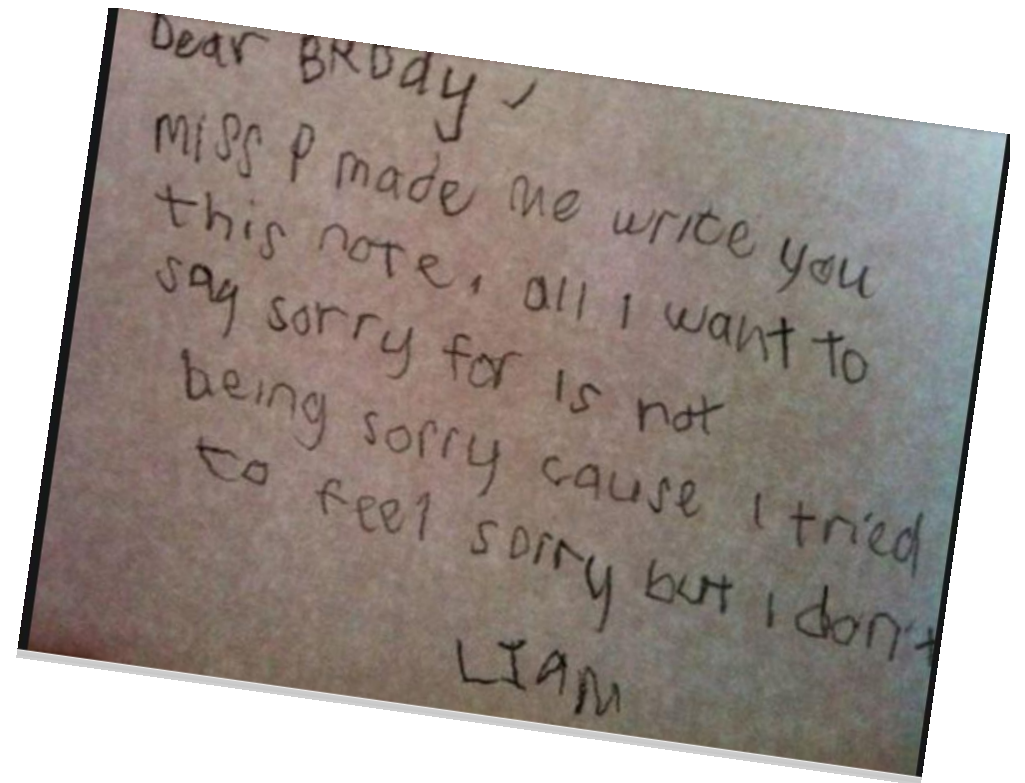 Dear BRODY,
Miss P made me write you
this note. all I want to
say sorry for is not
being sorry cause I tried
to feel sorry but I don't
LIAM